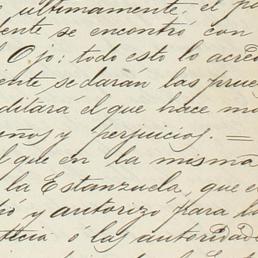 ultimamente, el p
ente se encontró con
Ojo: todo esto lo acred
ente se darán las prue
ditará el que hace m
enos y perjuicios. =
l que en la misma
la Estanzuela, que e
ió y autorizó para la
ticia ó las autoridade